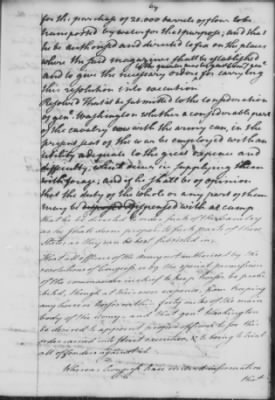 for the purchase of 20.000 barrels of flour to be
transported by water for that purpose; and that
he be authorised and directed to fix on the places
where the said magazines shall be established
and to give the necessary orders for carrying
this resolution into execution
Resolved That it be submitted to the consideration
of genl Washington whether a considerable part
of the cavalry now with the army can, in the
present seat of the war be employed with an
utility adequate to the great expence and
difficulty, which arise in supplying them
with forage; and if he shall be of opinion
that the duty of the whole or any part of them
may be dispensed with at camp
that he be directed to order such of the cavalry
as he shall deem proper to such parts of these
States as they can be best subsisted in.
That all officers of the army not authorised by the
resolutions of Congress or by the special permission
of the commander in chief to keep horses be prohi
bited, though at their own expence, from keeping
any horse or horses within forty miles of the main
body of the army, and that genl Washington
be desired to appoint proper officers to see this
order carried into strict execution, & to bring to trial
all offenders against it.
Whereas Congress have received information
that